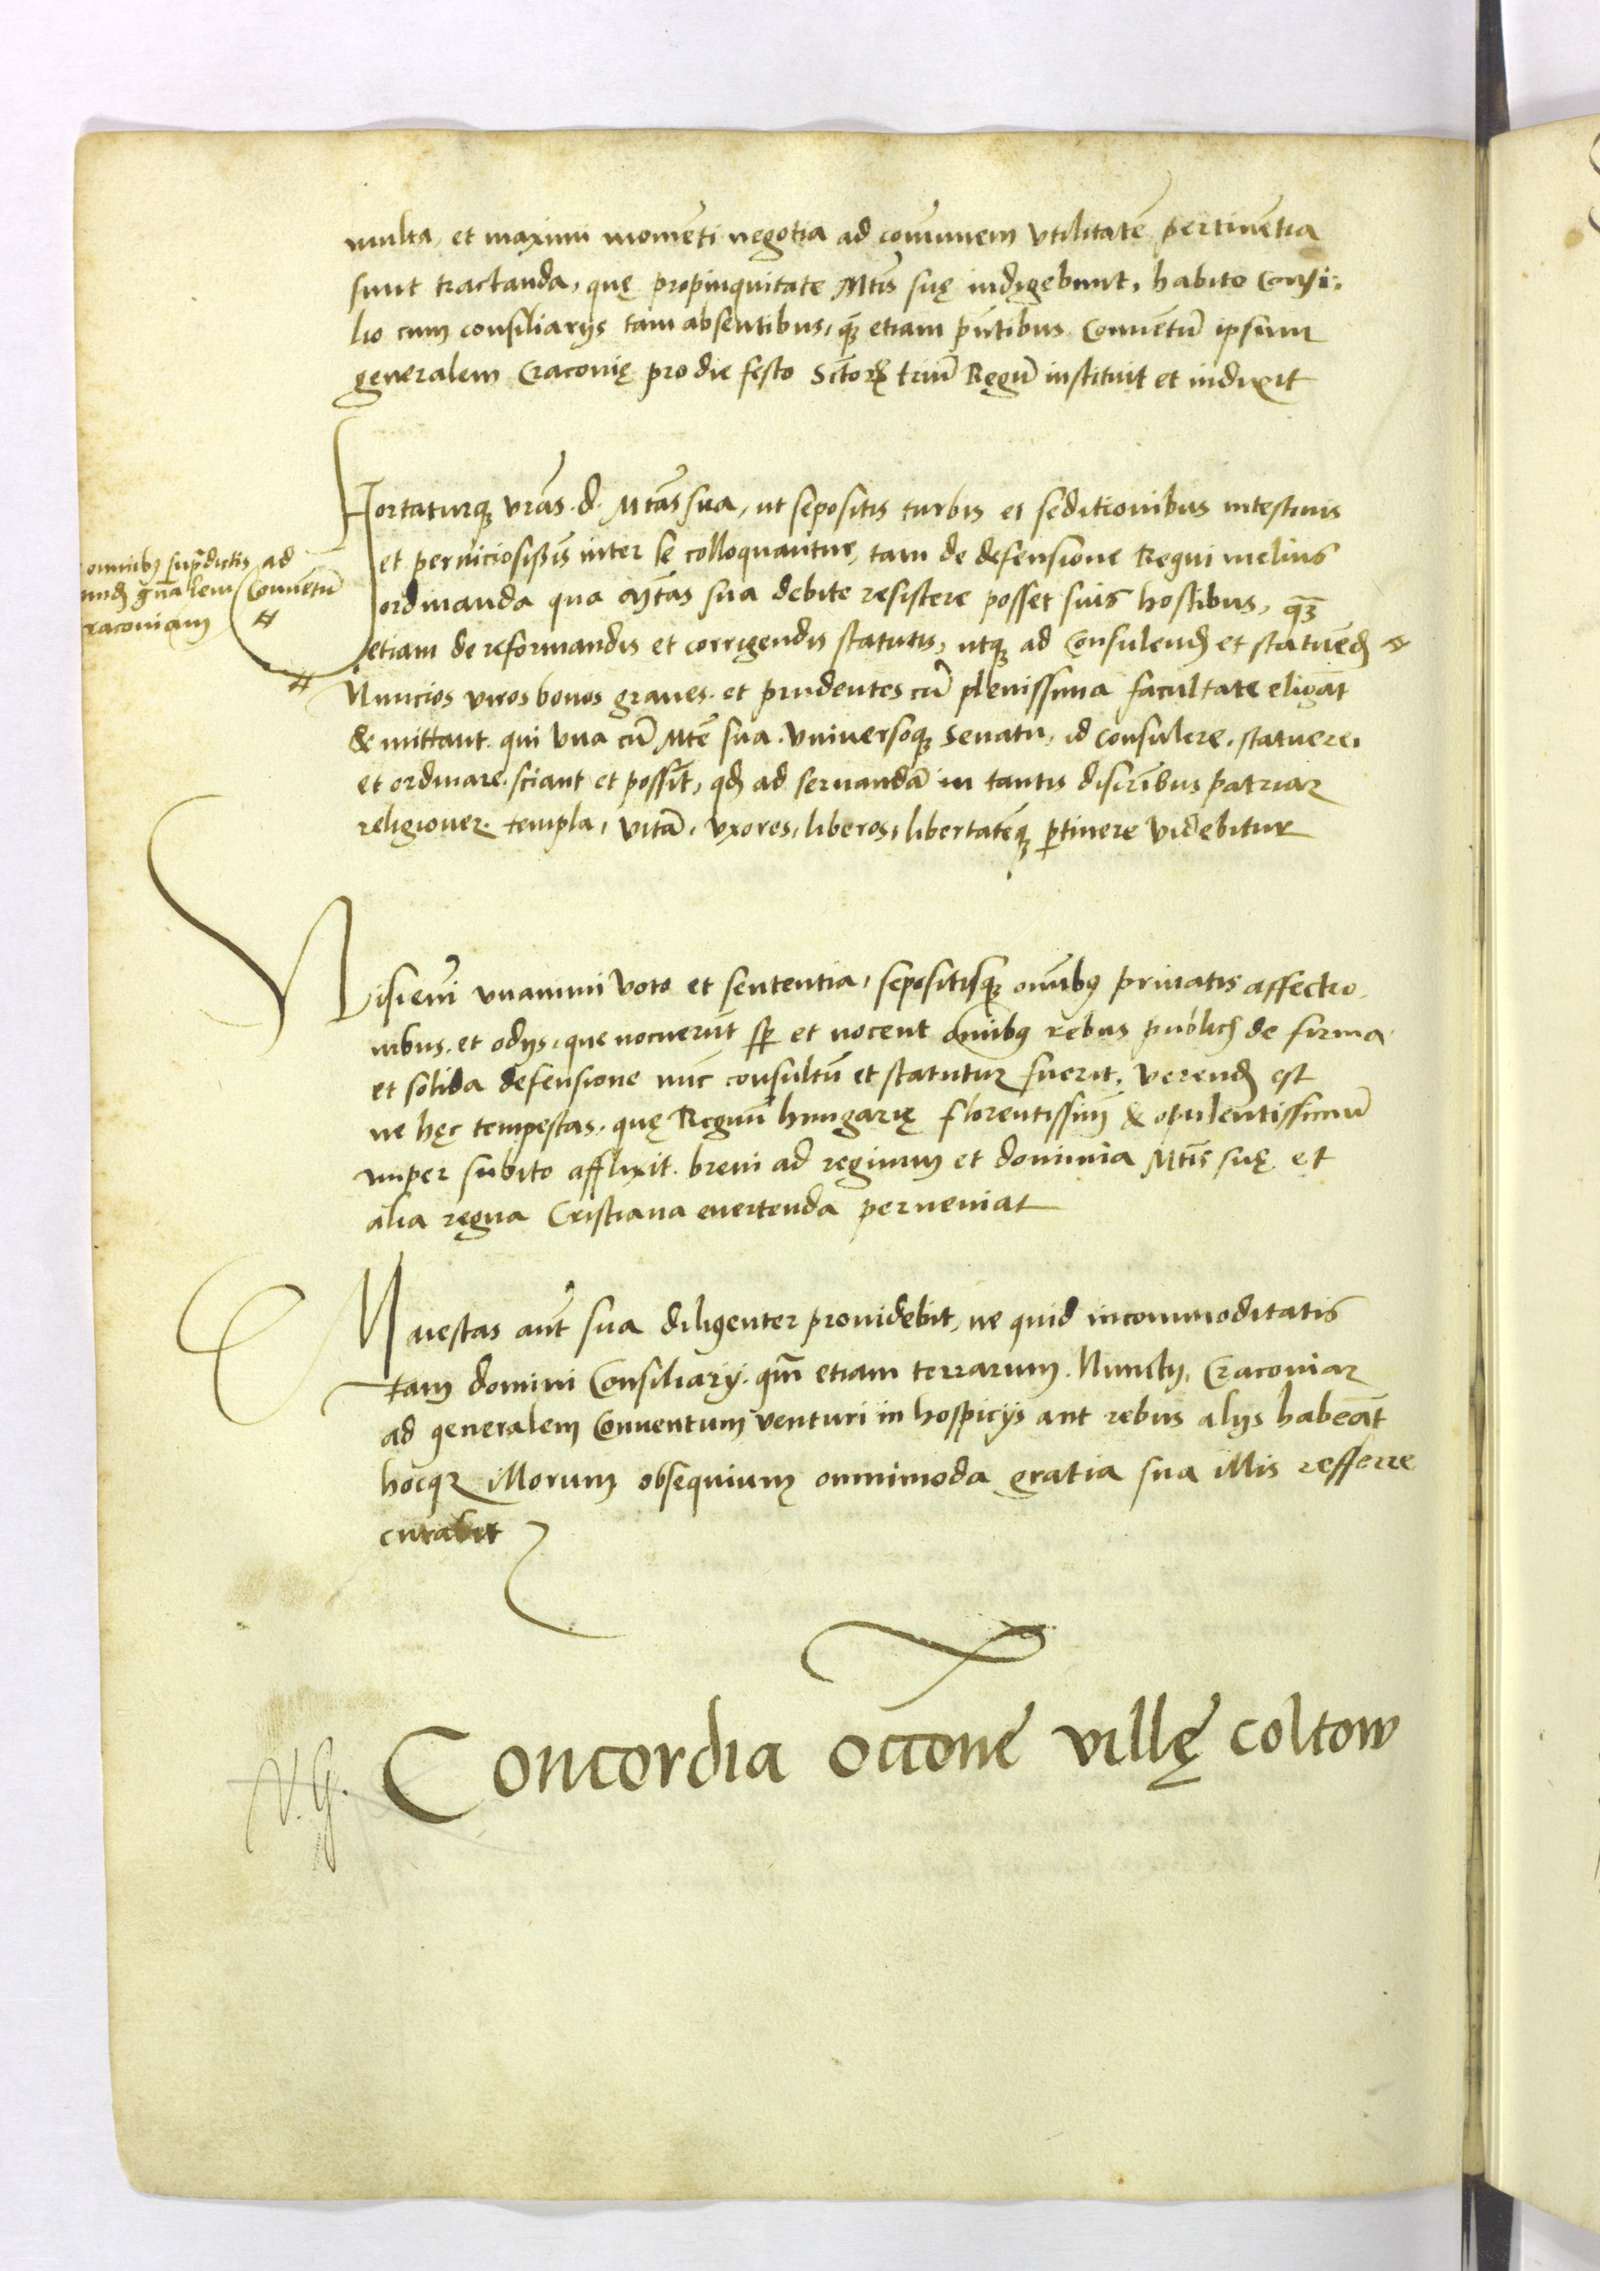 multa, et maximi momēti negotia ad cōmunem vtilitatē pertinētia
sunt tractanda, quę propinquitate Mtis suę indigebunt, habito Consi,
lio cum consiliarijs tam absentibus, qȝ etiam pn̄tibus Conuētū ipsum
generalem Craconię pro die festo Sctorꝝ triū Regū instituit et indixit
Hortaturqȝ vrās. d. Mtās sua, ut sepositis turbis et seditionibus intestinis
et perniciosissis̄ inter se colloquantur, tam de defensione Regni melius
omnibꝰ sup̄dictis ad
gn̄alem Conuētū
racouiam #
ordinanda qua Mtās sua debite resistere posset suis hostibus, qȝ
etiam de reformandis et corrigendis statutis, utqȝ ad Consulend̄ et statuēd̄
# Nuncios viros bonos graues. et prudentes cū plenissima facultate eligāt
& mittant. qui vna cū Mtē sua. vniuersoqȝ Senatu, id consulere. statuere,
et ordinare. sciant et possīt, qd̄ ad seruandā in tantis discrībus patriam
religionem. templa, vitā, vxores, liberos, libertatēqȝ ꝑtinere videbitur
Nisi eni vnanimi voto et sententia, sepositisqȝ omībꝰ priuatis affectio,
nibus. et odijs, que nocuerūt sꝑ et nocent omībꝰ rebus publicis de firma
et solida defensione nūc consultū et statutum fuerit, verend̄ est
ne hęc tempestas, quę Regnū hungarię florentissim̄ & opulentissimū
nuper subito afflixit. breui ad regnum et dominia Mtis suę et
alia regna Cristiana euertenda perueniat
Maiestas aūt sua diligenter prouidebit, ne quid incommoditatis
tam domini Consiliarij. qm̄ etiam terrarum. Nunctij, Cracouiam
ad generalem Conuentum venturi in hospicijs aut rebus alijs habeāt
hocqȝ illorum obsequium omnimoda gratia sua illis refferre
curabit
V. G. Concordia occone villę coltow